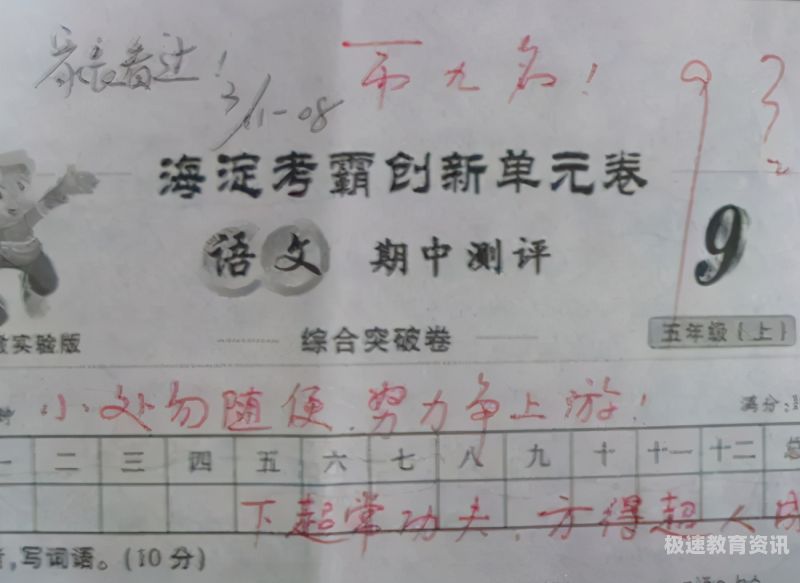 家长看过!
3/11-08
第九名!
93
海淀考霸创新单元卷
语文 期中测评
9
实验版
综合突破卷
五年级(上)
小处勿随便,努力争上游!
满分:
一 二 三 四 五 六 七 八 九 十 十一 十二 总
下起常功夫,方得超人成
,写词语。(10分)
极速教育资讯